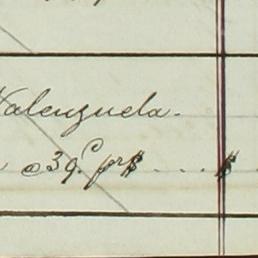 Valenzuela.
a 39.c pr $ .... $